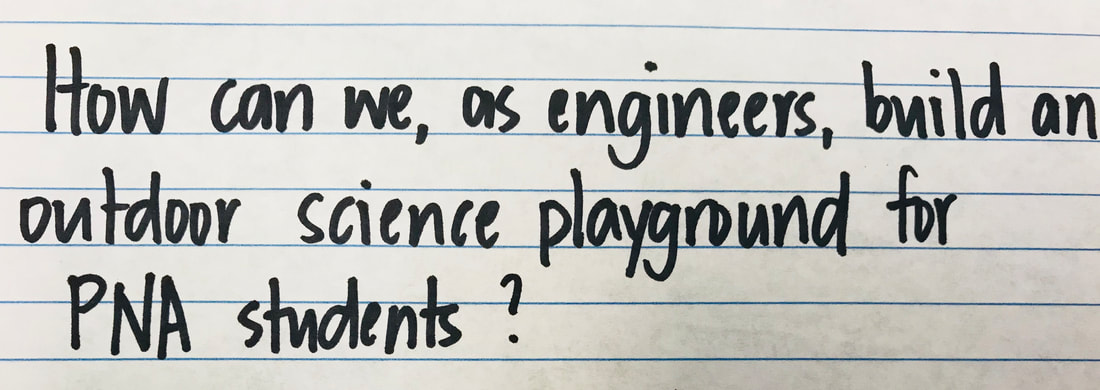 How can we, as engineers, build an
outdoor science playground for
PNA students?